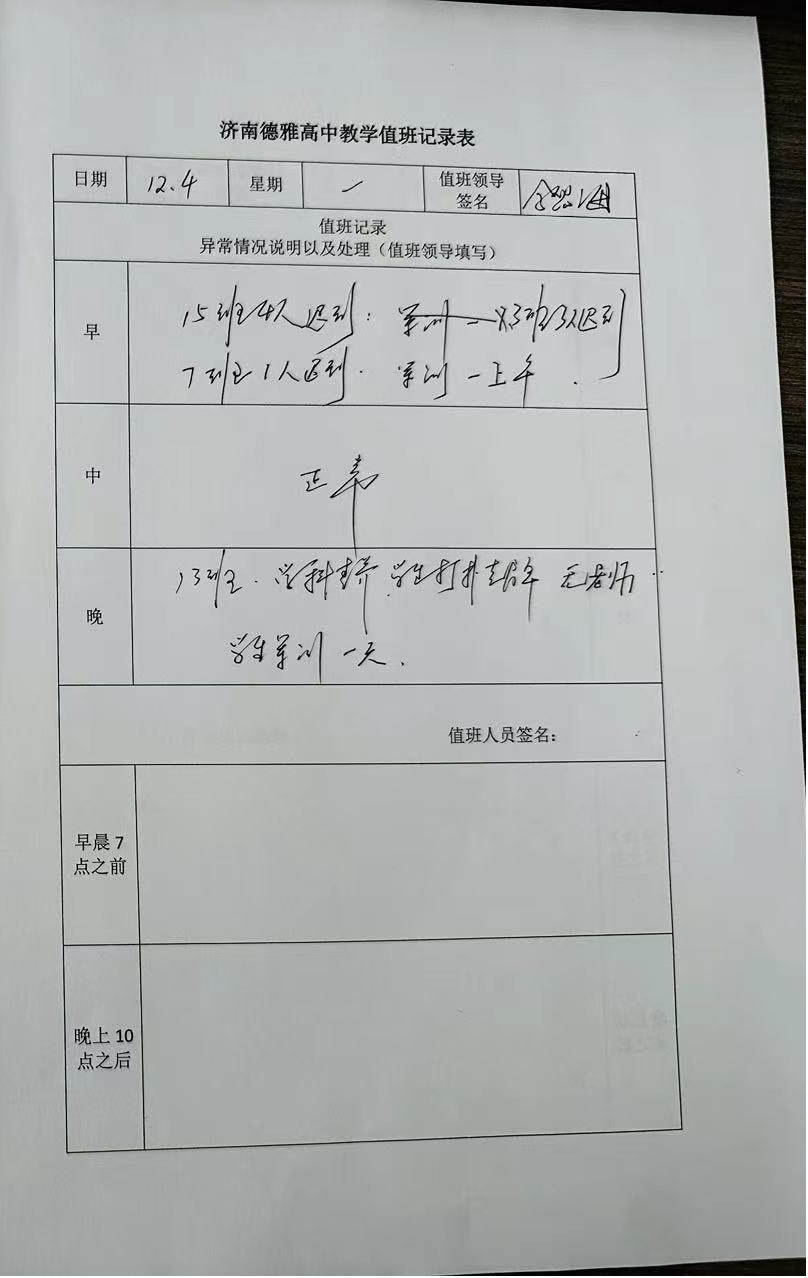 济南德雅高中教学值班记录表
日期 12.4 星期 一 值班领导签名
值班记录
异常情况说明以及处理（值班领导填写）
早 15班4人迟到： 军训一 13班3人迟到
7班1人迟到. 军训一上午.
中 正常
晚 13班. 学科素养 学生打扑克 无老师..
学生军训一天.
值班人员签名：
早晨7
点之前
晚上10
点之后